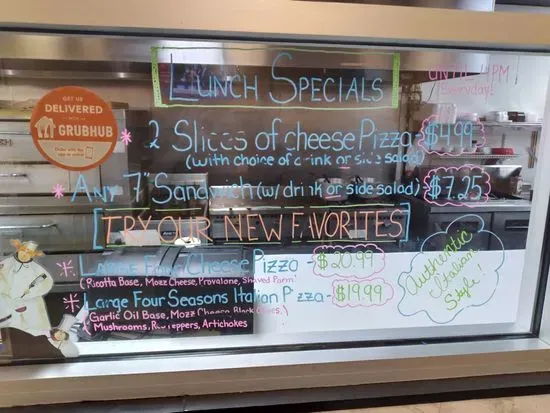 GET US
DELIVERED
WITH
GRUBHUB
Order with the
app or online
LUNCH SPECIALS
UNTIL 4PM
Everyday!
* 2 Slices of cheese Pizza - $4.99
(with choice of drink or side salad)
* ANY 7" Sandwich (w/ drink or side salad) $7.25
[TRY OUR NEW FAVORITES]
* LARGE Four Cheese Pizza - $20.99
(Ricotta Base, Mozz Cheese, Provalone, Shaved Parm)
* Large Four Seasons Italian Pizza - $19.99
(Garlic Oil Base, Mozz Cheese, Black Olives,
Mushrooms, Red Peppers, Artichokes
Authentic
Italian
Style!